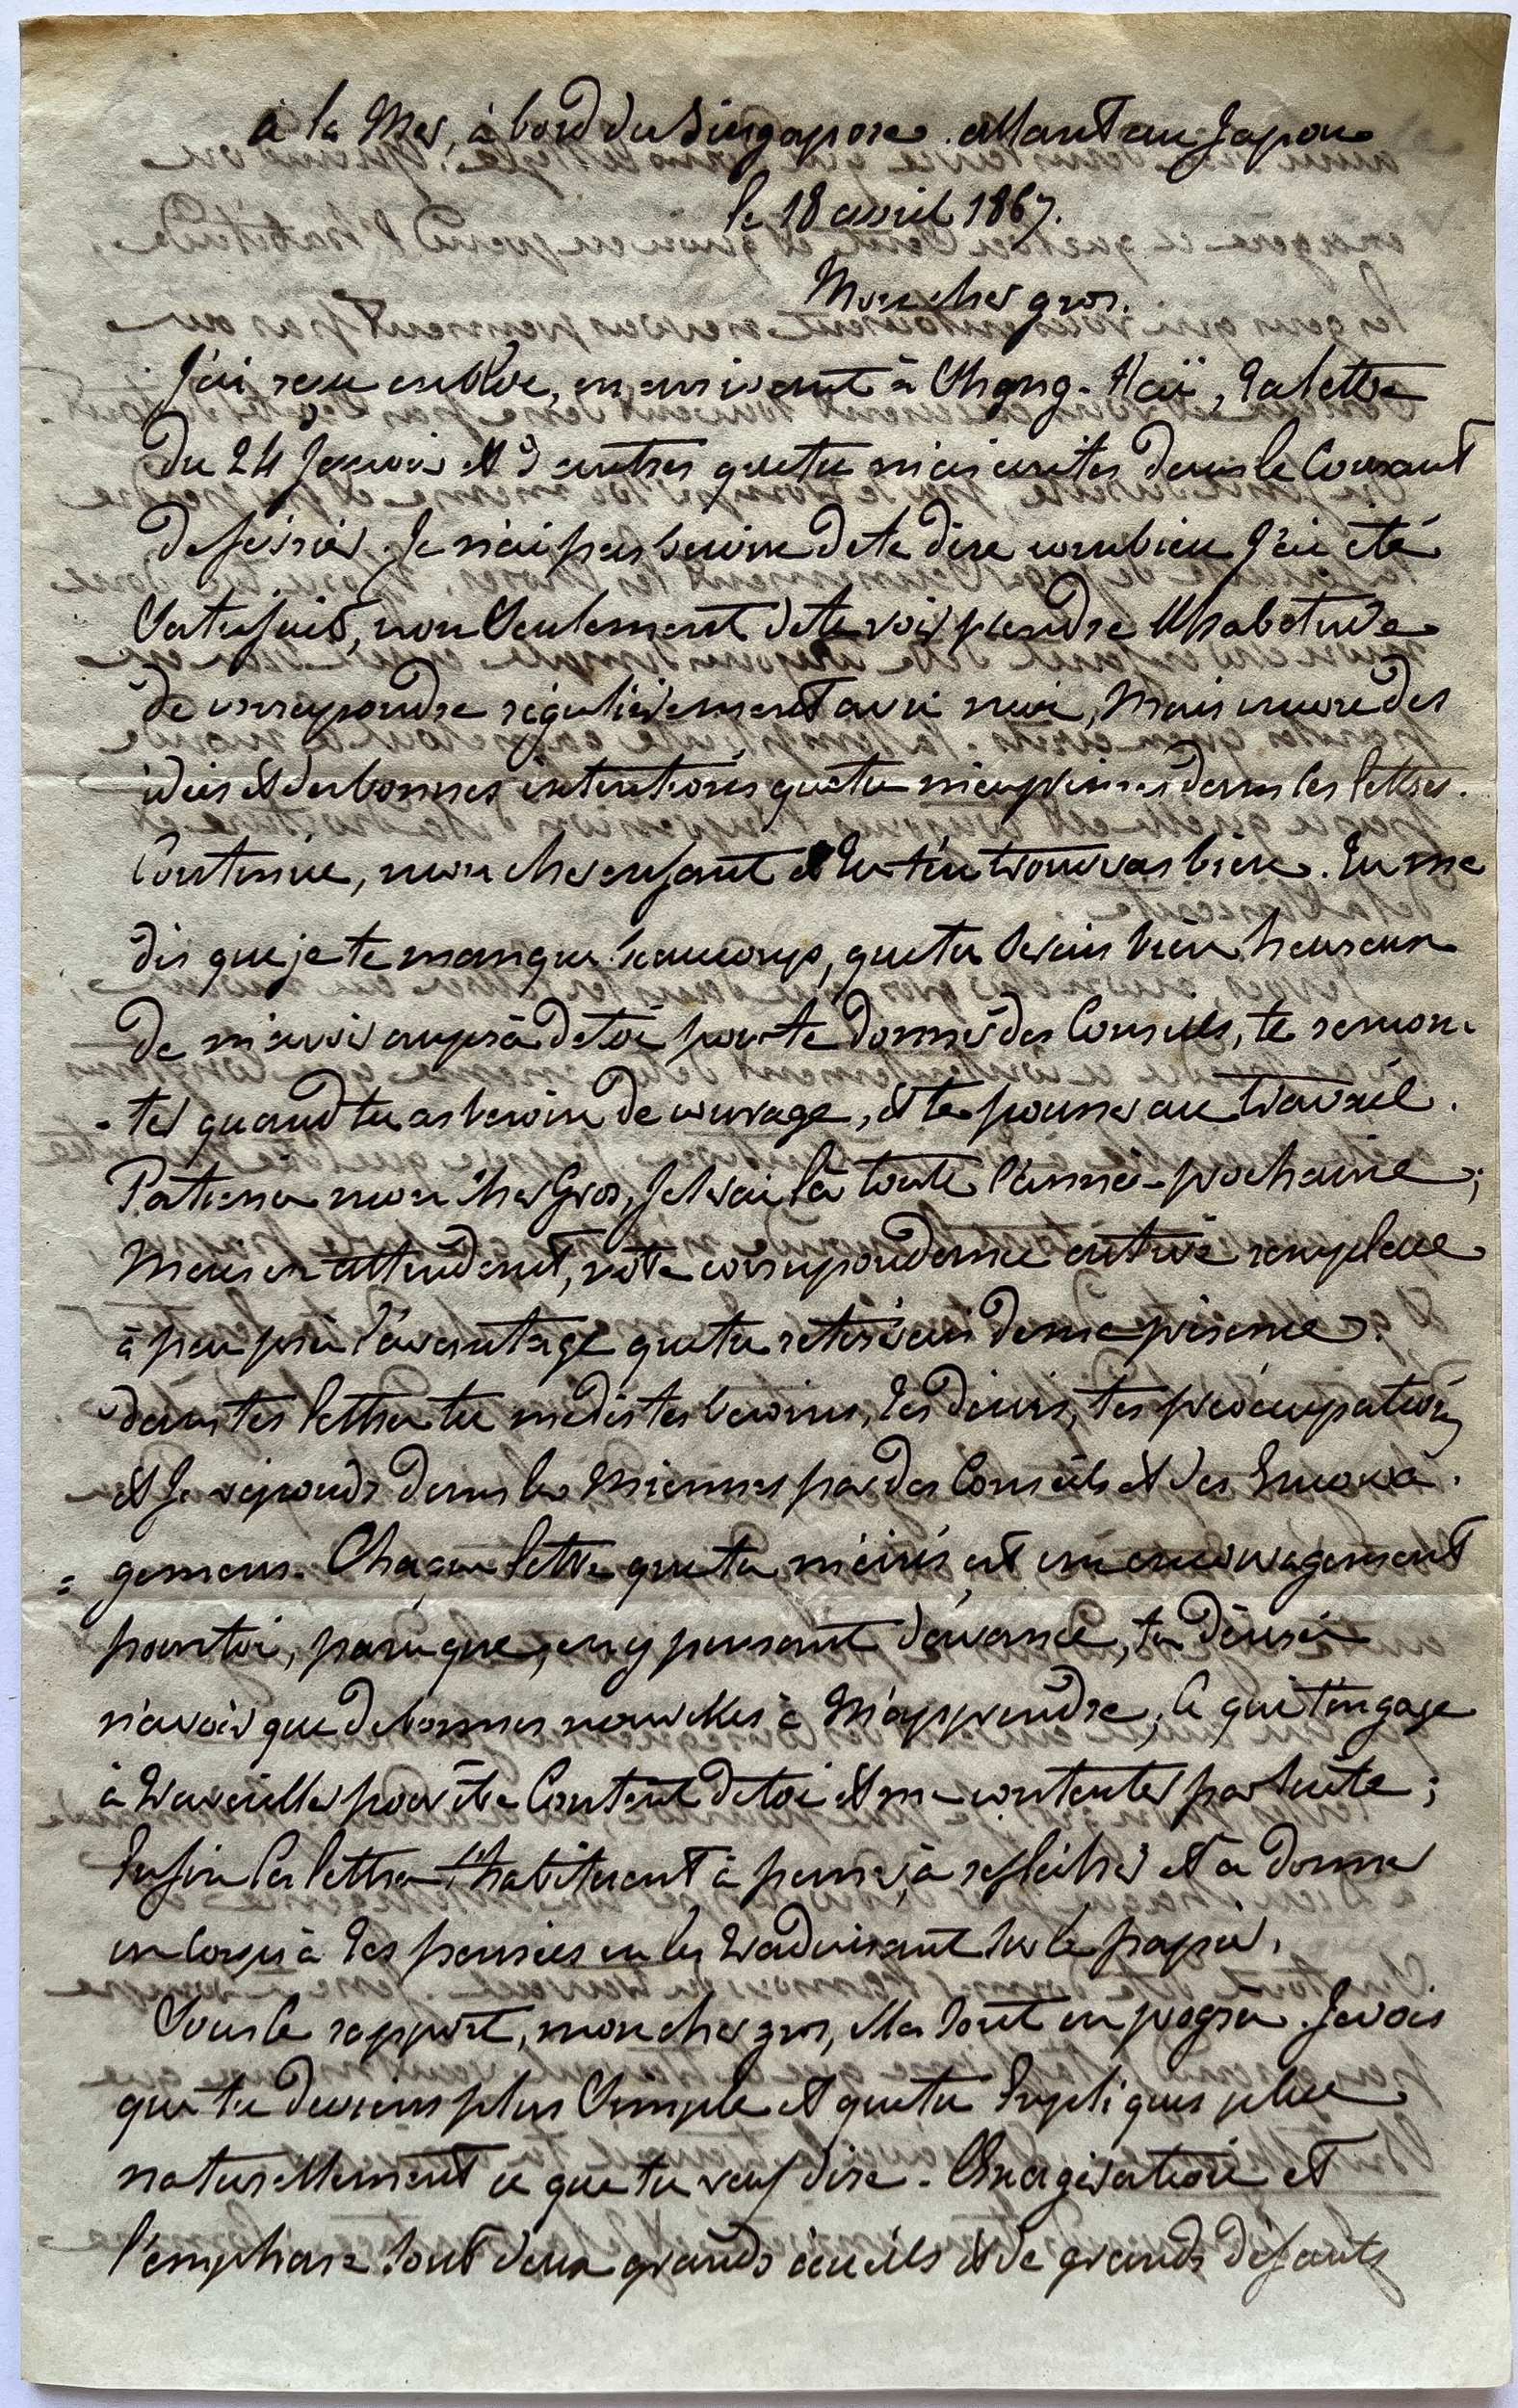 à la Mer, à bord du Singapore. allant au Japon
le 18 avril 1867.
Mon cher gros.
J'ai reçu en bloc, en arrivant à Chang-Haï, ta lettre
du 24 Janvier et 3 autres que tu m'as écrites dans le Courant
de février. Je n'ai pas besoin de te dire combien j'ai été
Satisfait, non Seulement de te voir prendre l'habitude
de correspondre régulièrement avec moi, Mais encore des
idées et des bonnes intentions que tu m'exprimes dans ces lettres.
Continue, mon cher enfant et tu t'en trouveras bien. Tu me
dis que je te manque beaucoup, que tu serais bien heureux
de m'avoir auprès de toi pour te donner des Conseils, te remon-
-ter quand tu as besoin de courage, et te pousser au travail.
Patience mon cher Gros, Je serai là toute l'année prochaine;
Mais en attendant, notre correspondance active remplace
à peu près l'avantage que tu retirerais de ma présence.
dans tes lettres tu me dis tes besoins, tes désirs, tes préoccupations
et Je réponds dans les Miennes par des Conseils et des Encoura-
= gemens. Chaque lettre que tu m'écris est un encouragement
pour toi, parce que, en y pensant d'avance, tu désires
n'avoir que de bonnes nouvelles à M'apprendre, Ce qui t'engage
à travailler pour être Content de toi et me contenter par suite;
Enfin Ces lettres t'habituent à penser, à réfléchir et à donner
un corps à tes pensées en les traduisant sur le papier.
Sous ce rapport, mon cher gros, elles sont en progrès. Je vois
que tu deviens plus Simple et que tu Expliques plus
naturellement ce que tu veux dire. L'exagération et
l'emphase sont deux grands écueils et de grands défauts